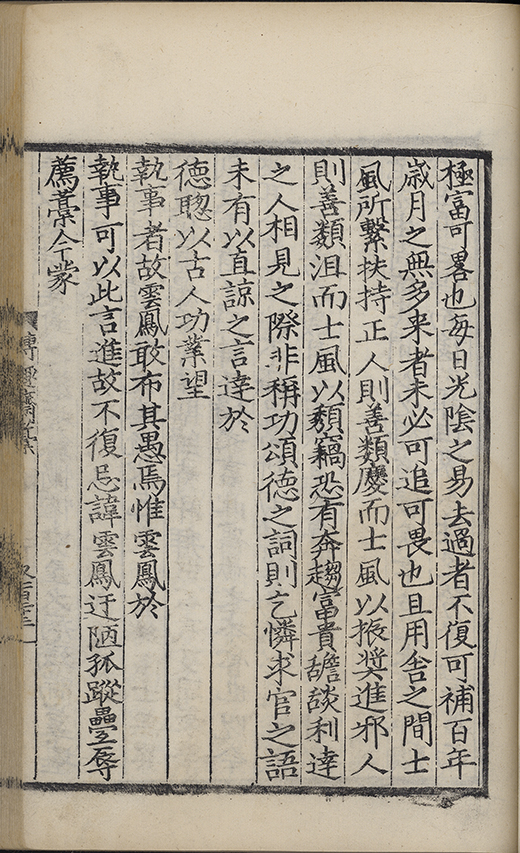 極富可畧也每日光陰之易去過者不復可補百年
歲月之無多来者未必可追可畏也且用舎之間士
風所繫扶持正人則善𩔖慶而士風以振奨進邪人
則善𩔖沮而士風以頽竊恐有奔趨富貴䜛諛利達
之人相見之際非稱功頌德之詞則乞憐求官之語
未有以直諒之言達於
德聦以古人功業望
執事者故雲鳳敢布其愚焉惟雲鳳於
執事可以此言進故不復忌諱雲鳳迂陋孤蹤疊辱
薦藁今蒙
博趣齋藁